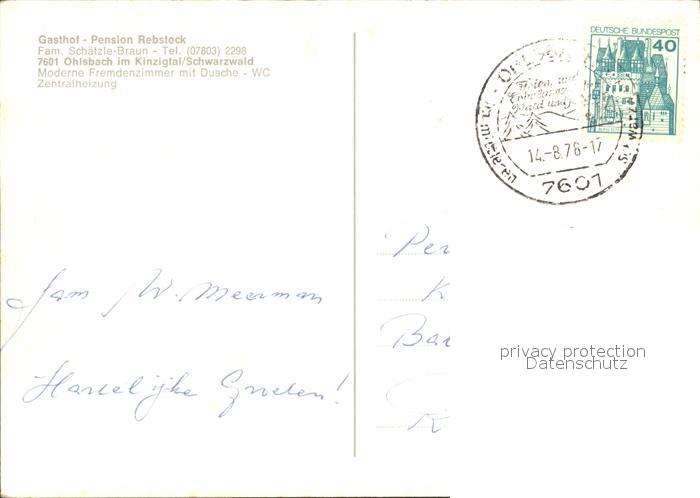 Gasthof - Pension Rebstock
Fam. Schätzle-Braun - Tel. (07803) 2298
7601 Ohlsbach im Kinzigtal/Schwarzwald
Moderne Fremdenzimmer mit Dusche - WC
Zentralheizung
DEUTSCHE BUNDESPOST
40
14.-8.78-17
7601
Fam W. Meerman
Hartelijke Groeten!
Per
K
Bar
K
privacy protection
Datenschutz